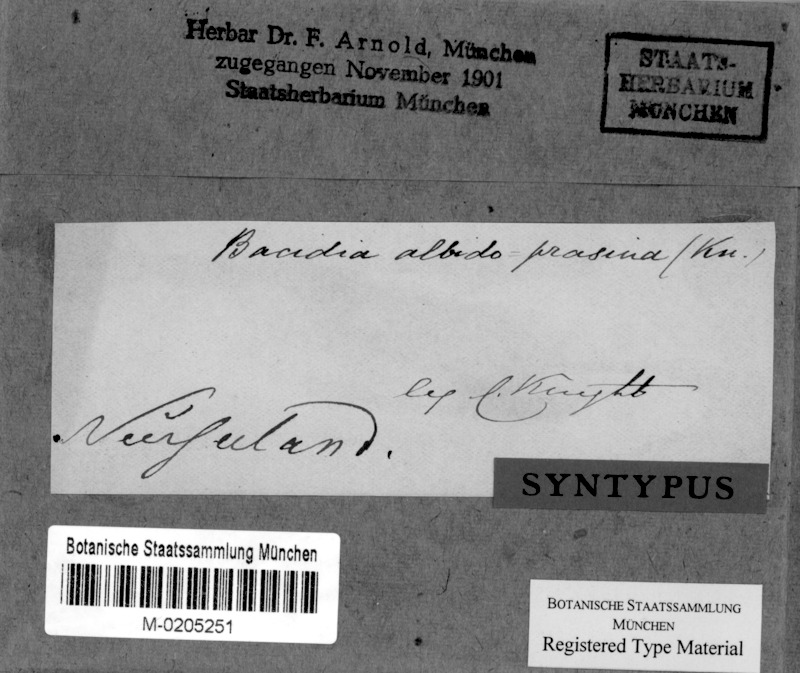 Herbar Dr. F. Arnold, München
zugegangen November 1901
Staatsherbarium München
STAATS-
HERBARIUM
MÜNCHEN
Bacidia albido=prasina (Kn.)
leg C. Knight
Neuseeland.
SYNTYPUS
Botanische Staatssammlung München
M-0205251
BOTANISCHE STAATSSAMMLUNG
MÜNCHEN
Registered Type Material